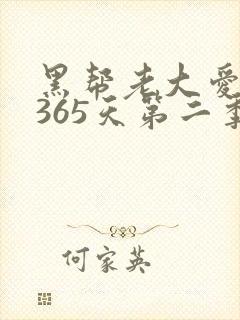 黑帮老大爱
365天第二季
何家英